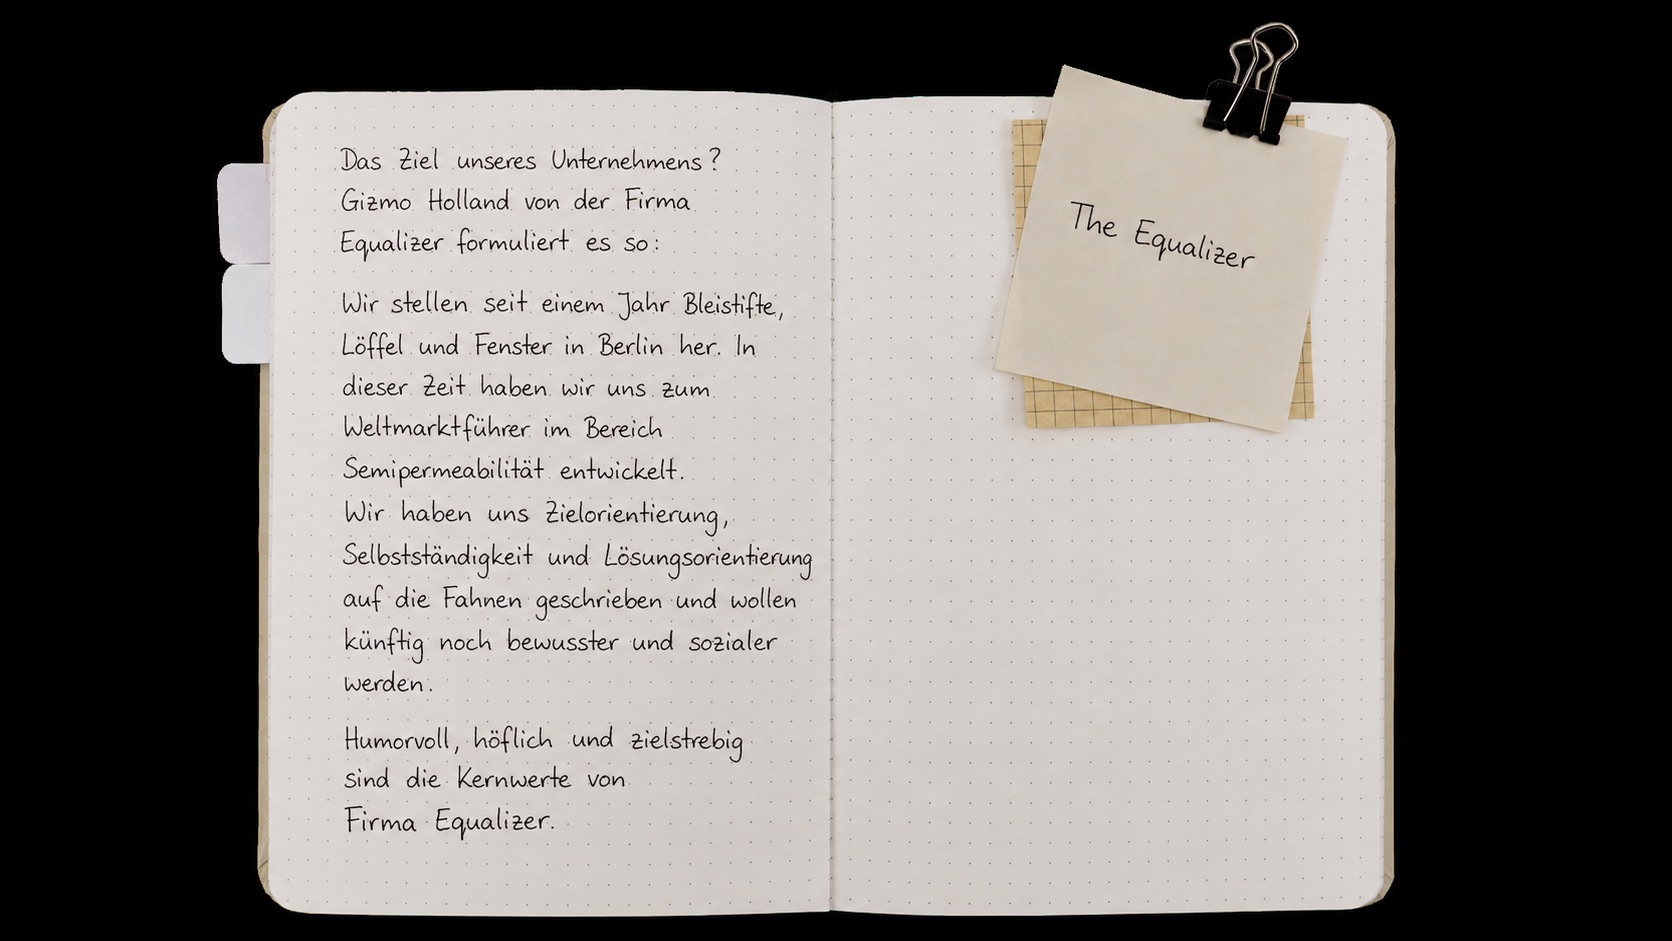 Das Ziel unseres Unternehmens?
Gizmo Holland von der Firma
Equalizer formuliert es so:
Wir stellen seit einem Jahr Bleistifte,
Löffel und Fenster in Berlin her. In
dieser Zeit haben wir uns zum
Weltmarktführer im Bereich
Semipermeabilität entwickelt.
Wir haben uns Zielorientierung,
Selbstständigkeit und Lösungsorientierung
auf die Fahnen geschrieben und wollen
künftig noch bewusster und sozialer
werden.
Humorvoll, höflich und zielstrebig
sind die Kernwerte von
Firma Equalizer.
The Equalizer